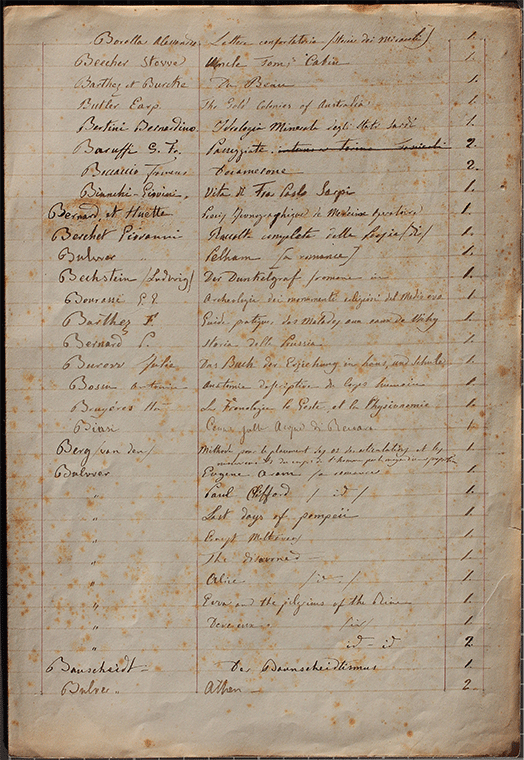 Borella Alessandro Lettere confortatoria 1.
Beecher Stowe Uncle Tom's Cabin 1.
Barthez et Du Beau 1.
Butler Earp The Gold Colonies of Australia 1.
Bertini Bernardino Idrologia Minerale degli Stati Sardi 1.
Baruffi G. F. Passeggiate 2.
Boccaccio Decamerone 2.
Bianchi-Giovini Vita di Fra Paolo Sarpi 1.
Bernard, et Huette Iconographique de Médecine 1.
Berchet Giovanni Raccolta completa delle Poesie (di) 1.
Bulwer „ Pelham (a romance) 1.
Bechstein (Ludwig) Der Dunkelgraf (romane in 1.
Bourassé Archeologia dei monumenti religiosi del Medio evo 1.
Barthez F. Guide pratique des Malades aux eaux de Vichy 1.
Bernard Storia della Prussia 1.
Burow Julie Das Buch der Erziehung in Haus und Schule 1.
Bossu Antonin Anatomie descriptive du corps humain 1.
Bruyères La Phrenologie le Geste, et la Physionomie 1.
Biasi Acque di 1.
Berg (van den) Méthode pour le placement 1.
mouvements du corps de l'homme
Bulwer Eugene Aram (a romance) 1.
„ Paul Clifford (id) 1.
„ Last days of pompeii 1.
„ Ernest Maltravers 1.
„ The disowned — 1.
„ Alice (id —) 1.
„ and the pilgrims of the Rhine 1.
„ Devereux (id) 1.
„ id — id 2.
Baunscheidt — Der Baunscheidtismus 1.
Bulwer „ Athen — 2.